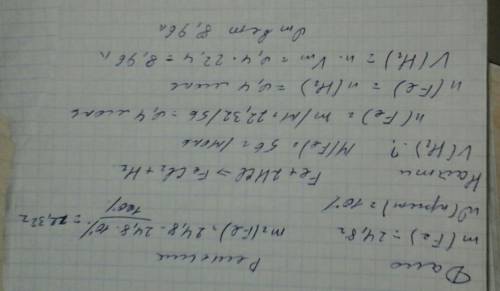 Дано
Решение
m(Fe) = 24,8г
m₂(Fe) = 24,8 - 24,8 · 10% / 100% = 22,32г
W(прим) = 10%
Найти
Fe + 2HCl → FeCl₂ + H₂
V(H₂) - ?
M(Fe) = 56 г/моль
n(Fe) = m/M = 22,32/56 = 0,4 моль
n(Fe) = n(H₂) = 0,4 моль
V(H₂) = n · Vm = 0,4 · 22,4 = 8,96л
Ответ 8,96л